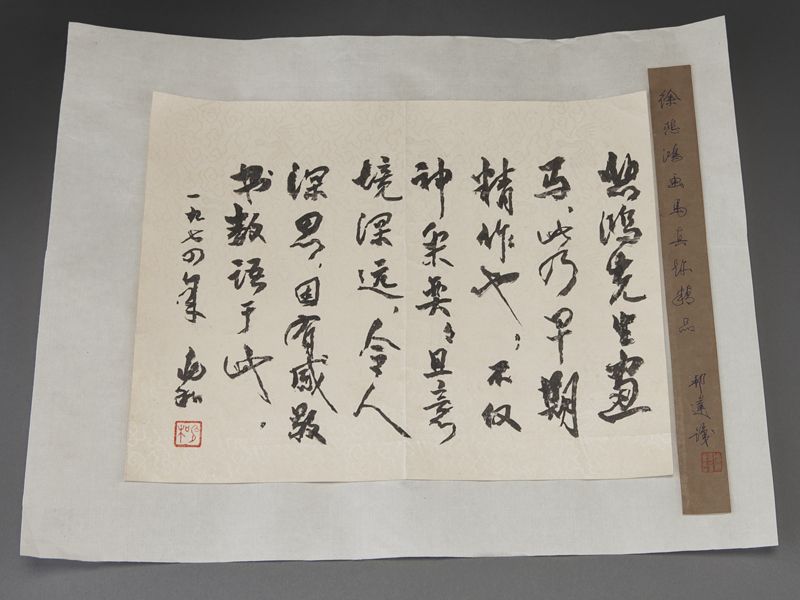 徐悲鸿画马真跡精品
邦達识
悲鸿先生画
马、此乃早期
精作也,不仅
神采奕々且意
境深远,令人
深思,因有感敬
书数语于此。
一九七四年